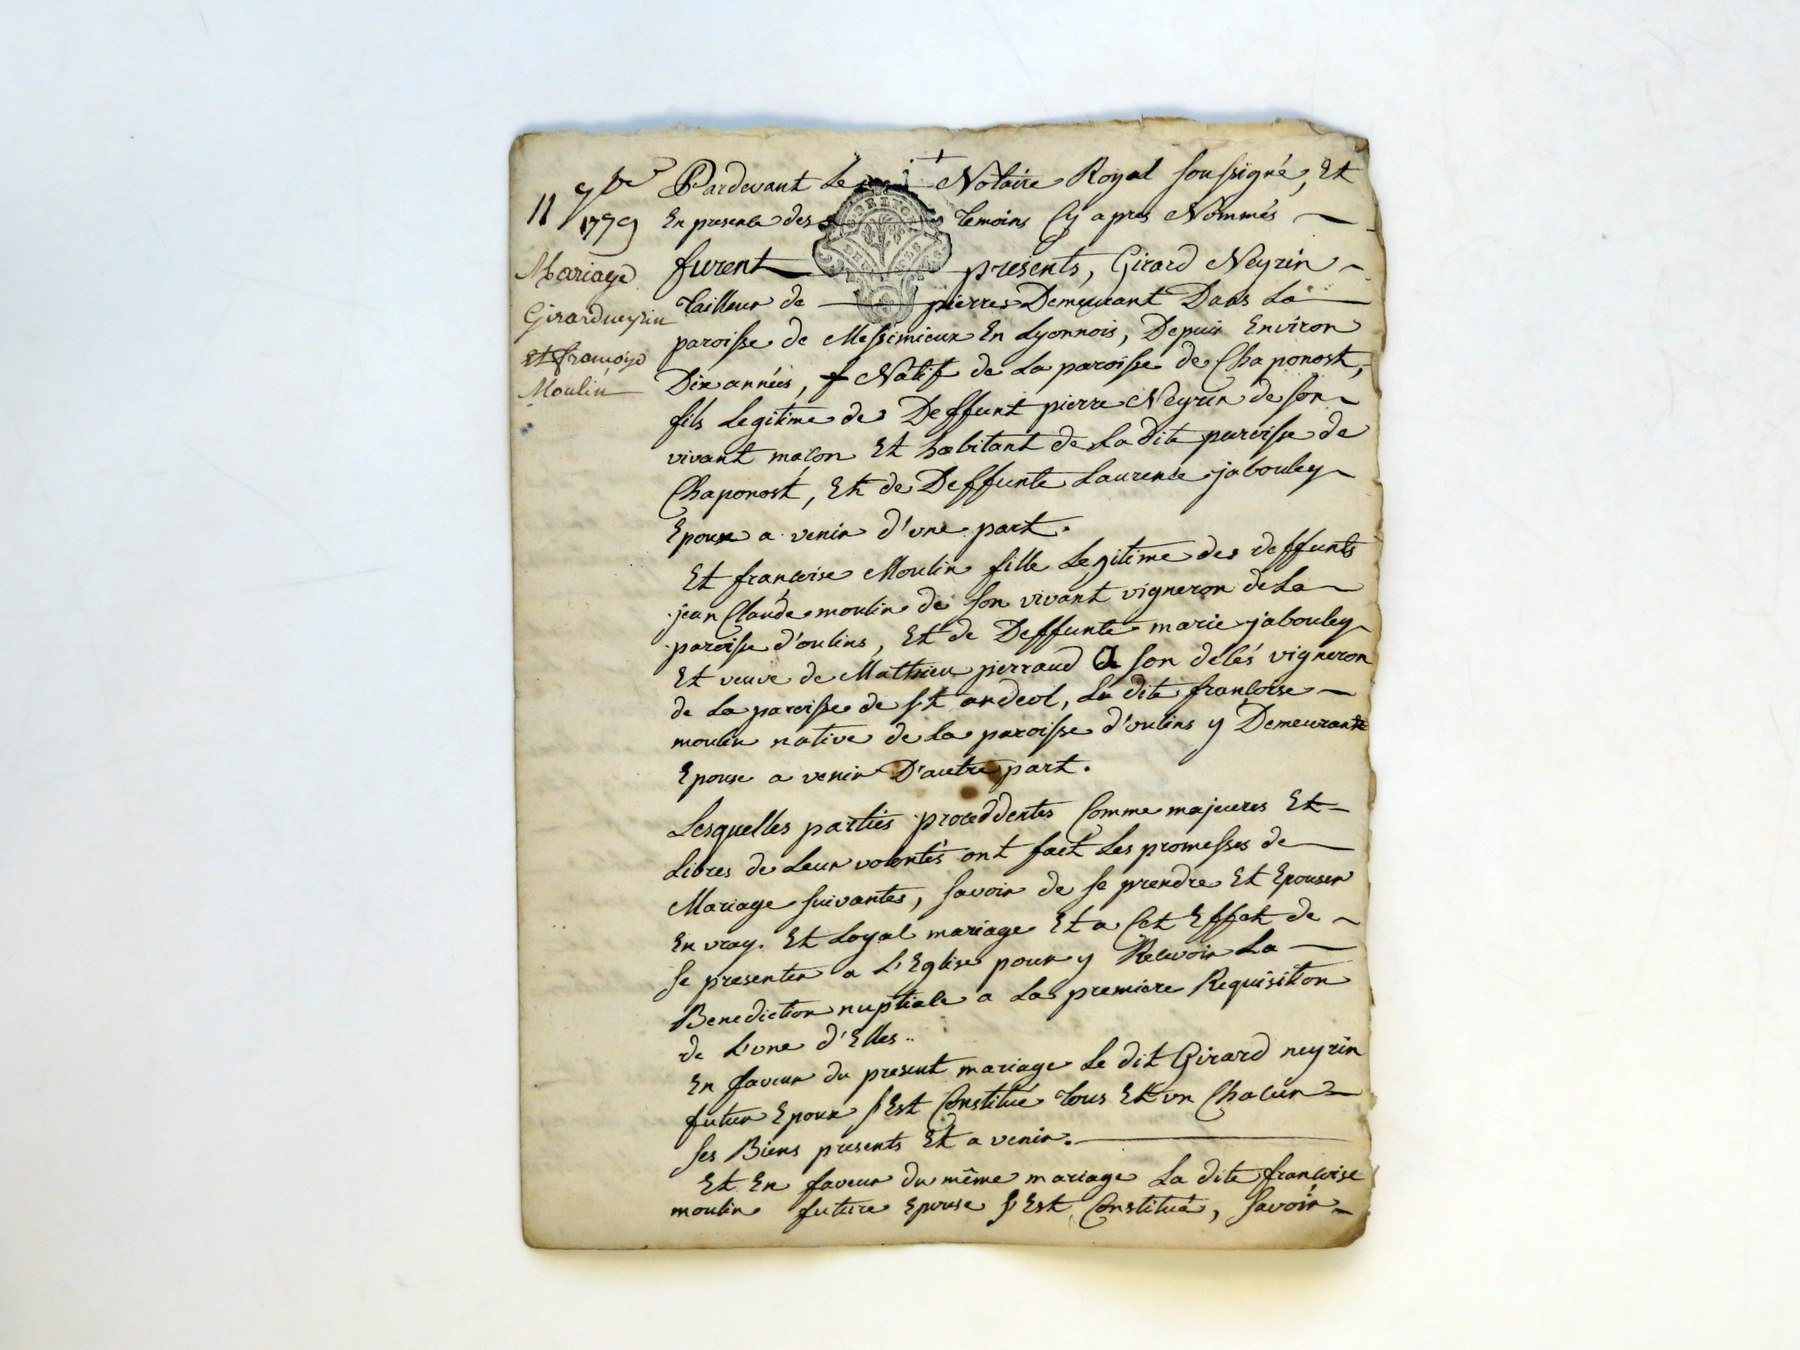 11 7bre
1779
Mariage
Girard neyrin
et françoise
Moulin
Pardevant Le Notaire Royal soussigné, Et
En presence des temoins Cy apres Nommés
furent presents, Girard Neyrin
tailleur de pierres Demeurant Dans La
paroisse de Messimieux En Lyonnois, Depuis Environ
Dix années, Natif de La paroisse de Chaponost,
fils Legitime de Deffunt pierre Neyrin de son
vivant maçon Et habitant de La dite paroisse de
Chaponost, Et de Deffunte Laurence jabouley
Epoux a venir d'une part.
Et françoise Moulin fille Legitime des deffunts
jean Claude moulin de son vivant vigneron de La
paroisse d'oulins, Et de Deffunte marie jabouley
Et veuve de Mathieu pierraud a son delés vigneron
de La paroisse de st andeol, La dite françoise
moulin native de La paroisse d'oulins y Demeurante
Epouse a venir D'autre part.
Lesquelles parties proceddentes Comme majeures Et
Libres de Leur volontés ont fait Les promesses de
Mariage suivantes, savoir de se prendre Et Epouser
En vray. Et Loyal mariage Et a Cet Effet de
se presenter a L'Eglise pour y Recevoir La
Benediction nuptiale a La premiere Requisition
de L'une d'Elles..
En faveur du present mariage Le dit Girard neyrin
futur Epoux s'Est Constitué tous Et un Chacun
ses Biens presents Et a venir.
Et En faveur du même mariage La dite françoise
moulin future Epouse s'Est Constitué, savoir